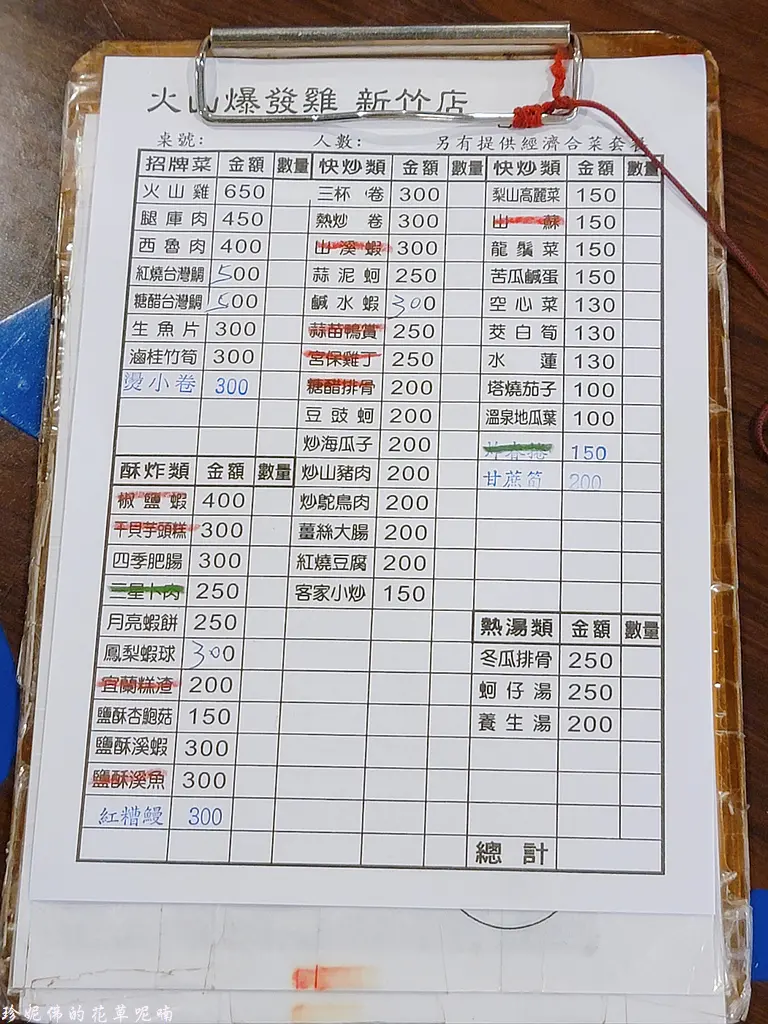 火山爆發雞 新竹店
桌號: 人數: 另有提供經濟合菜套
招牌菜 金額 數量 快炒類 金額 數量 快炒類 金額 數量
火山雞 650 三杯 卷 300 梨山高麗菜 150
腿庫肉 450 熱炒 卷 300 山蘇 150
西魯肉 400 山溪蝦 300 龍鬚菜 150
紅燒台灣鯛 500 蒜泥蚵 250 苦瓜鹹蛋 150
糖醋台灣鯛 500 鹹水蝦 300 空心菜 130
生魚片 300 蒜苗鴨賞 250 茭白筍 130
滷桂竹筍 300 宮保雞丁 250 水蓮 130
燙小卷 300 糖醋排骨 200 塔燒茄子 100
豆豉蚵 200 溫泉地瓜葉 100
炒海瓜子 200 炸春捲 150
酥炸類 金額 數量 炒山豬肉 200 甘蔗筍 200
椒鹽蝦 400 炒鴕鳥肉 200
干貝芋頭糕 300 薑絲大腸 200
四季肥腸 300 紅燒豆腐 200
三星卜肉 250 客家小炒 150
月亮蝦餅 250 熱湯類 金額 數量
鳳梨蝦球 300 冬瓜排骨 250
宜蘭糕渣 200 蚵仔湯 250
鹽酥杏鮑菇 150 養生湯 200
鹽酥溪蝦 300
鹽酥溪魚 300
紅糟鰻 300
總計
珍妮佛的花草呢喃